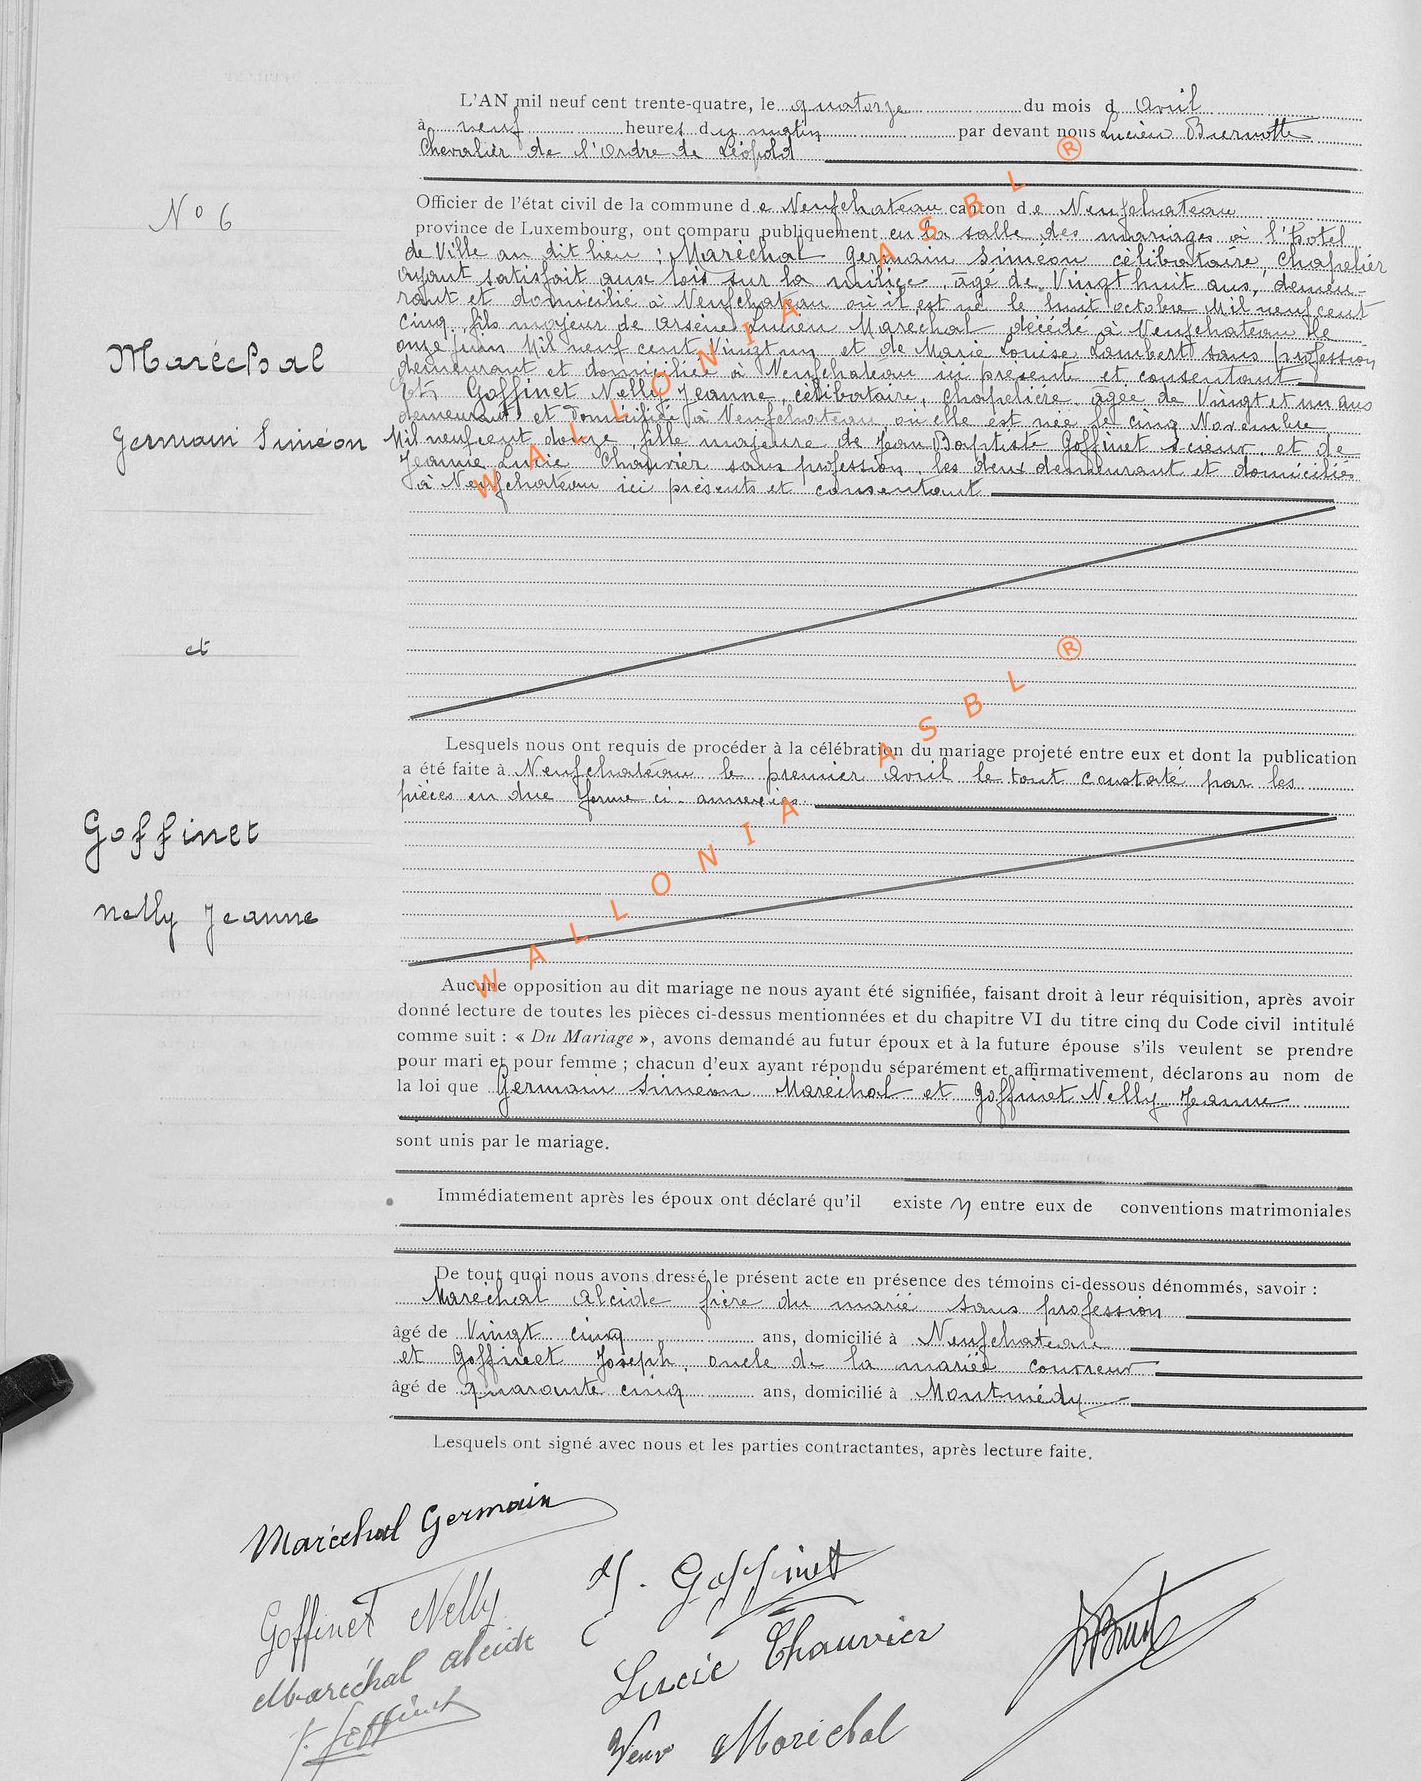 L'AN mil neuf cent trente-quatre, le quatorze du mois d Avril
à neuf heures du matin par devant nous Lucien
Chevalier de l'Ordre de Léopold
Officier de l'état civil de la commune de Neufchateau canton de Neufchateau
N° 6
province de Luxembourg, ont comparu publiquement en la salle des mariages à l'hotel
de Ville au dit lieu : Maréchal Germain Siméon célibataire, Chapelier
ayant satisfait aux lois sur la milice, âgé de Vingt huit ans, demeu-
rant et domicilié à Neufchateau où il est né le huit octobre Mil neuf cent
cinq, fils majeur de Arsène Lucien Maréchal décédé à Neufchateau le
onze juin Mil neuf cent Vingt un et de Marie Louise Lambert sans profession
demeurant et domiciliée à Neufchateau ici présente et consentant
Et, Goffinet Nelly Jeanne, célibataire, Chapelière âgée de Vingt et un ans
demeurant et domiciliée à Neufchateau où elle est née le cinq Novembre
Mil neuf cent douze, fille majeure de Jean Baptiste Goffinet scieur et de
Jeanne Lucie Chauvier sans profession, les deux demeurant et domiciliés
à Neufchateau ici présents et consentant
Maréchal
Germain Siméon
et
Goffinet
Nelly Jeanne
Lesquels nous ont requis de procéder à la célébration du mariage projeté entre eux et dont la publication
a été faite à Neufchateau le premier Avril le tout constaté par les
pièces en due forme ci-annexées.
Aucune opposition au dit mariage ne nous ayant été signifiée, faisant droit à leur réquisition, après avoir
donné lecture de toutes les pièces ci-dessus mentionnées et du chapitre VI du titre cinq du Code civil intitulé
comme suit : « Du Mariage », avons demandé au futur époux et à la future épouse s'ils veulent se prendre
pour mari et pour femme ; chacun d'eux ayant répondu séparément et affirmativement, déclarons au nom de
la loi que Germain Siméon Maréchal et Goffinet Nelly Jeanne
sont unis par le mariage.
Immédiatement après les époux ont déclaré qu'il existe entre eux de conventions matrimoniales
De tout quoi nous avons dressé le présent acte en présence des témoins ci-dessous dénommés, savoir :
Maréchal Alcide frère du marié sans profession
âgé de Vingt cinq ans, domicilié à Neufchateau
et Goffinet Joseph, oncle de la mariée couvreur
âgé de quarante cinq ans, domicilié à Montmédy
Lesquels ont signé avec nous et les parties contractantes, après lecture faite.
Maréchal Germain
Goffinet Nelly
Maréchal Alcide
J. Goffinet
J. Goffinet
Lucie Chauvier
Veuve Maréchal
WALLONIA ASBL ®
WALLONIA ASBL ®